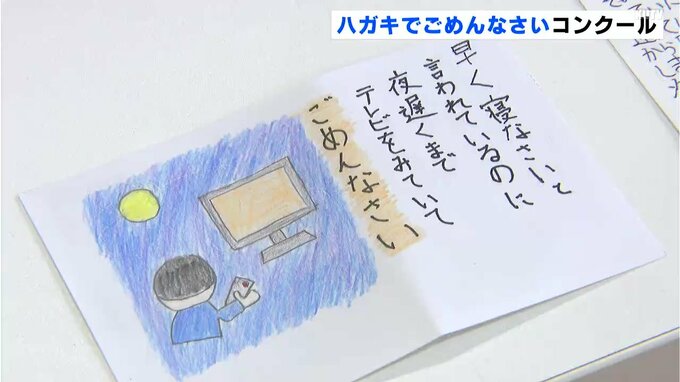 ハガキでごめんなさいコンクール
早く寝なさいと
言われているのに
夜遅くまで
テレビをみていて
ごめんなさい